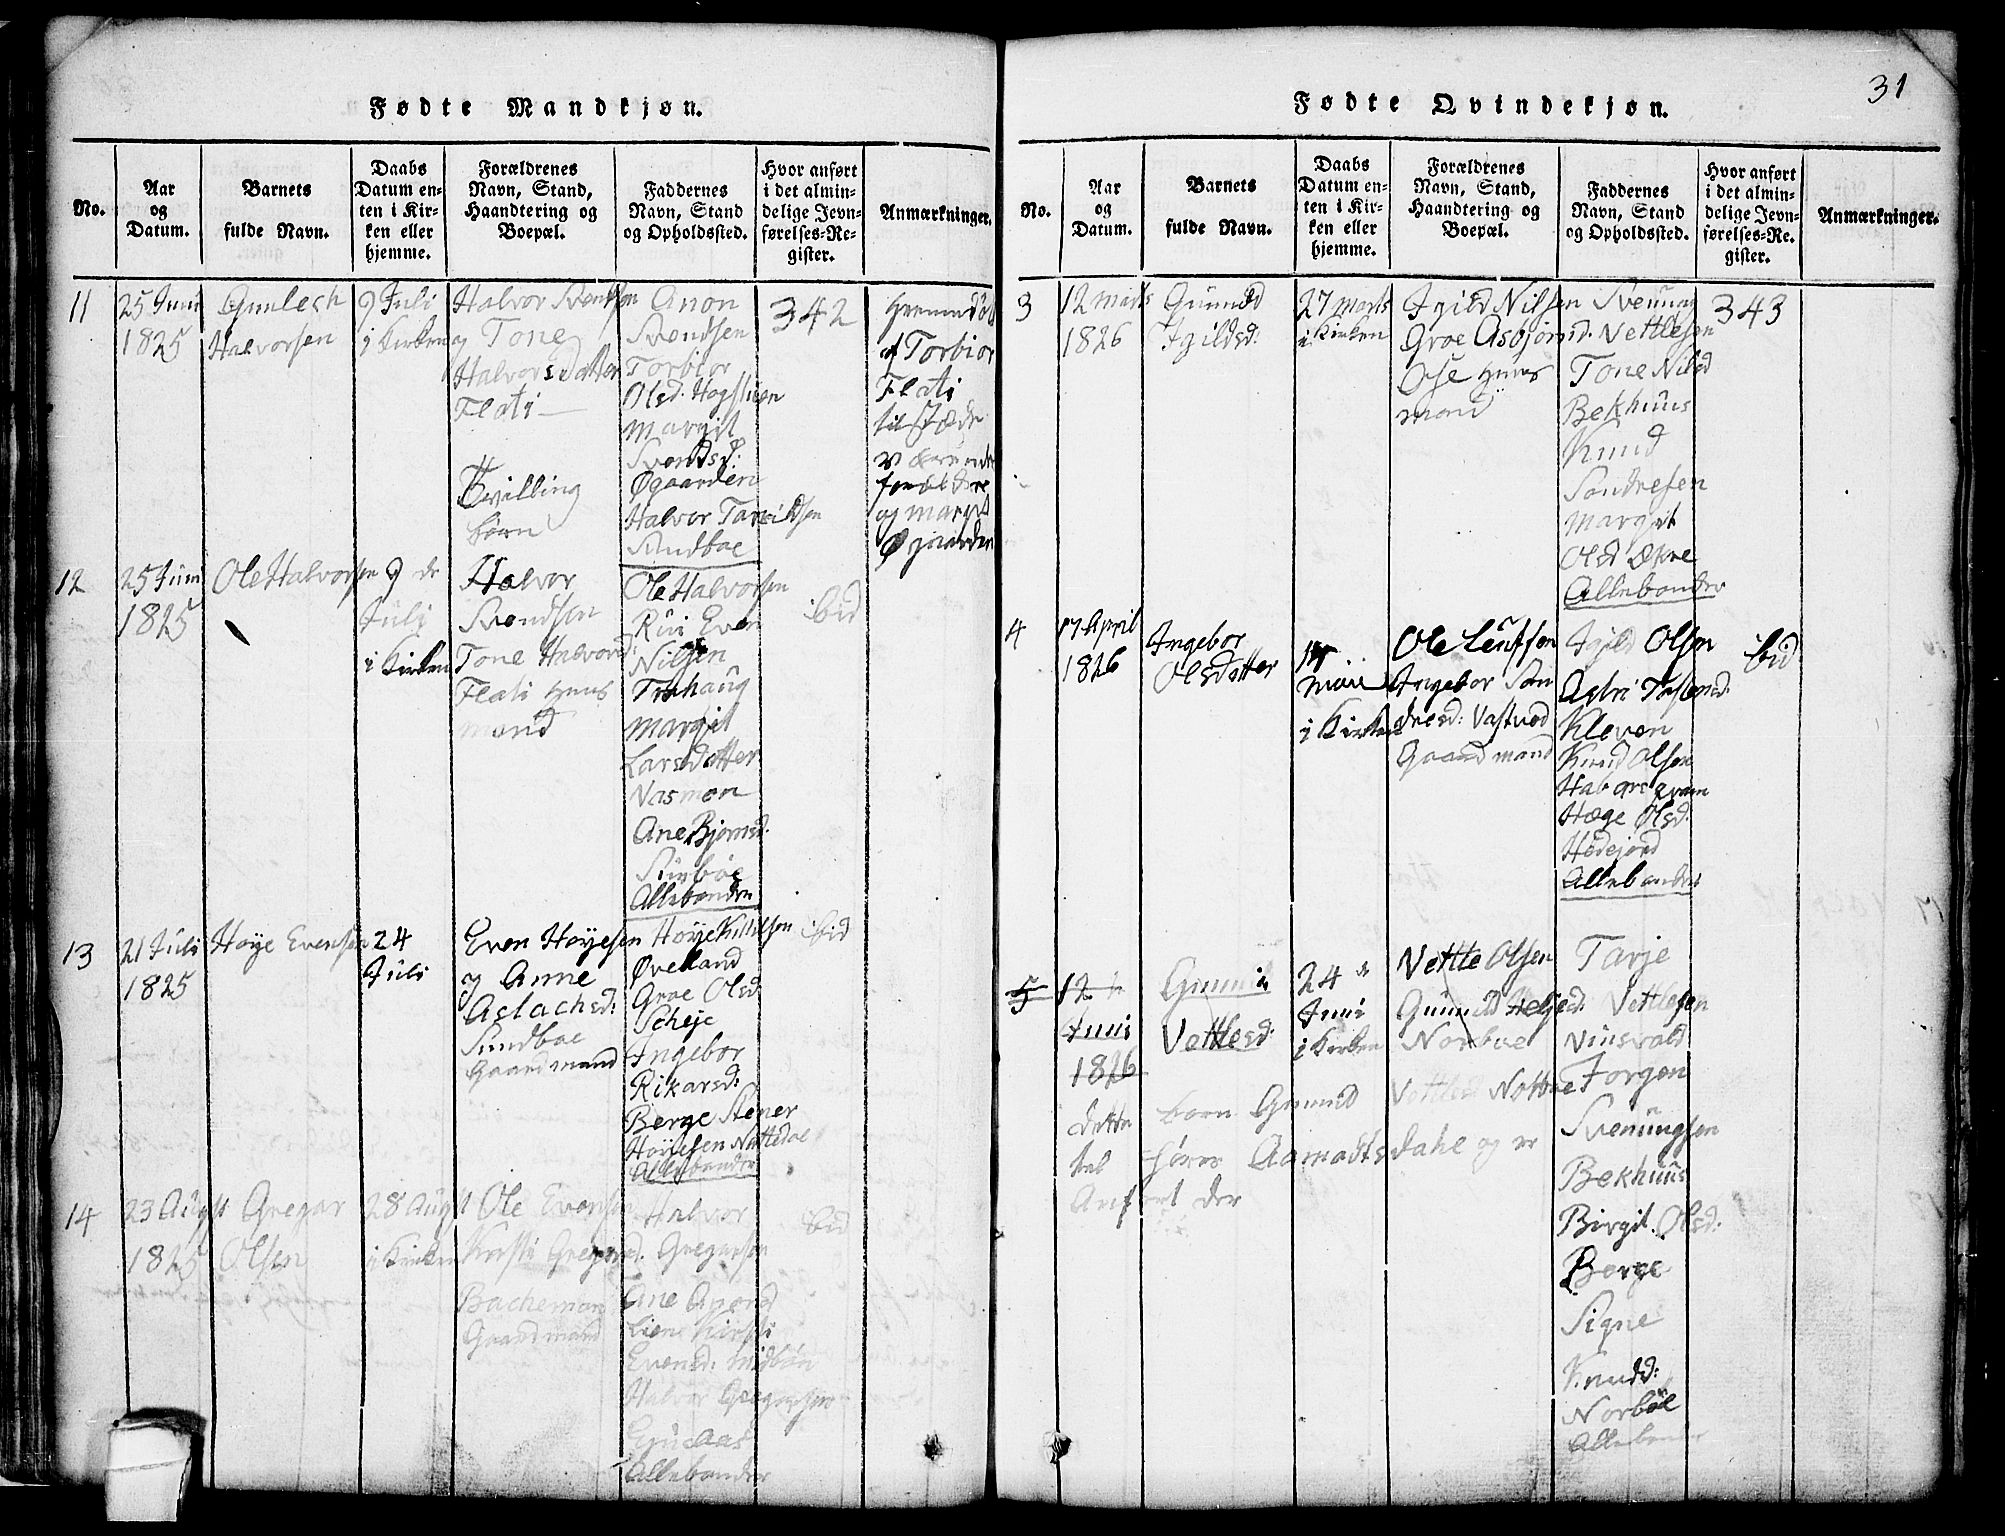 31
Fødte Mandkjøn.
No.
Aar
og
Datum.
Barnets
fulde Navn.
Daabs
Datum en-
ten i Kir-
ken eller
hjemme.
Forældrenes
Navn, Stand,
Haandtering og
Boepæl.
Faddernes
Navn, Stand
og Opholdssted.
Hvor anført
i det almin-
delige Jevn-
førelses-Re-
gister.
Anmærkninger.
11
25 Juni
1825
Gunlech
Halvorsen
9 Juli
i Kirken
Halvor Svendsen
og Tone
Halvorsdatter
Flati
Tvilling
børn
Anon
Svendsen
Torbior
Olsd. Hogstuen
Margit
Svendsd:
Øgaarden
Halvor Tarvildsen
Sundboe
342
af Torbior
Flati
til stæde
og Margit
Øgaarden
12
25 Juni
1825
Ole Halvorsen
9 de
Juli
i Kirken
Halvor
Svendsen
Tone Halvord:
Flati Huus
mand
Ole Halvorsen
Rui Even
Nilsen
Trahaug
Margit
Larsdatter
Vasmoen
Ane Bjornsd:
Allebønder
ibid
13
21 Juli
1825
Hoye Evensen
24
Juli
Even Hoyesen
og Anne
Aslachsd:
Sundboe
Gaardmand
Hoye Kittilsen
Øveland
Groe Olsd
Scheje
Ingebor
Rikarsd:
Berge Stener
Hoyesen Nattedoe
Allebønder
ibid
14
23 August
1825
Gregar
Olsen
28 Augst
i Kirken
Ole Evensen
Kirsti Gregarsd.
Bacheman
Gaardmand
Halvor
Gregarsen
Ane Anond
Lien Kirsti
Evensd: Midbøn
Halvor Gregarsen
Allebønder
ibid
Fødte Qvindekjøn.
No.
Aar
og
Datum.
Barnets
fulde Navn.
Daabs
Datum en-
ten i Kir-
ken eller
hjemme.
Forældrenes
Navn, Stand,
Haandtering og
Boepæl.
Faddernes
Navn, Stand
og Opholdssted.
Hvor anført
i det almin-
delige Jevn-
førelses-Re-
gister.
Anmærkninger.
3
12 Marts
1826
Gunnild
Igildsd:
27 Marts
i Kirken
Igild Nilsen
Groe Asbjørnsd:
Ose Huus
mand
Svenung
Vettlesen
Tone Nilsd
Bekhuus
Knud
Sondresen
Margit
Olsd Økre
Allebønder
343
4
17 April
1826
Ingebor
Olsdatter
Maii
i Kirken
Ole Leufsen
Ingebor Son
dresd: Vastved
Gaardmand
Igild Olsen
Kleven
Knud Olsen
Hæge Olsd:
Hedejord
Allebønder
ibid
5
12
Juni
1826
Gunnild
Vettlesd:
24 de
Juni
i Kirken
Vettle Olsen
Gunnild Heljesd:
Norboe
Tarje
Vettlesen
Vinsvald
Jorgen
Svenungsen
Bekhuus
Birgit Olsd:
Berge
Signe
Knudd:
Norbøe
Allebønder
dette barn Gunnild Vettlesd Norboe
til hører Aamodtsdahl og er
Anført der